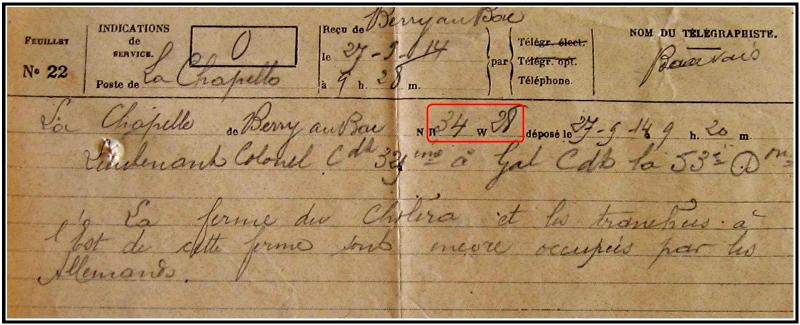 FEUILLET
No 22
INDICATIONS
DE
SERVICE.
O
Poste de La Chapelle
Reçu de Berry au Bac
le 27-9-14
à 9 h. 28 m.
par
Télégr. élect.
Télégr. opt.
Téléphone.
NOM DU TÉLÉGRAPHISTE.
Beauvais
La Chapelle de Berry au Bac N R 34 W 28 déposé le 27-9-14 9 h. 20 m.
Lieutenant Colonel Cdt à Gal Cdt la 53e D on
La ferme du Choléra et les tranchées à
l'Est de cette ferme sont encore occupées par les
Allemands.